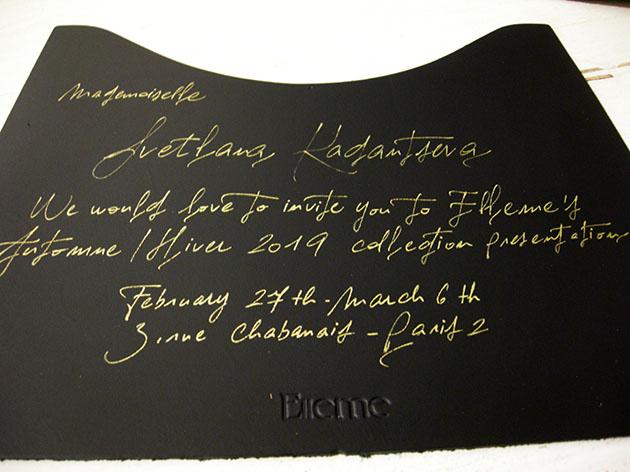 Mademoiselle
Svetlana Kadantseva
We would love to invite you to Elleme's
Automne / Hiver 2019 collection presentations
February 27th - March 6th
3, rue Chabanais - Paris 2
Elleme